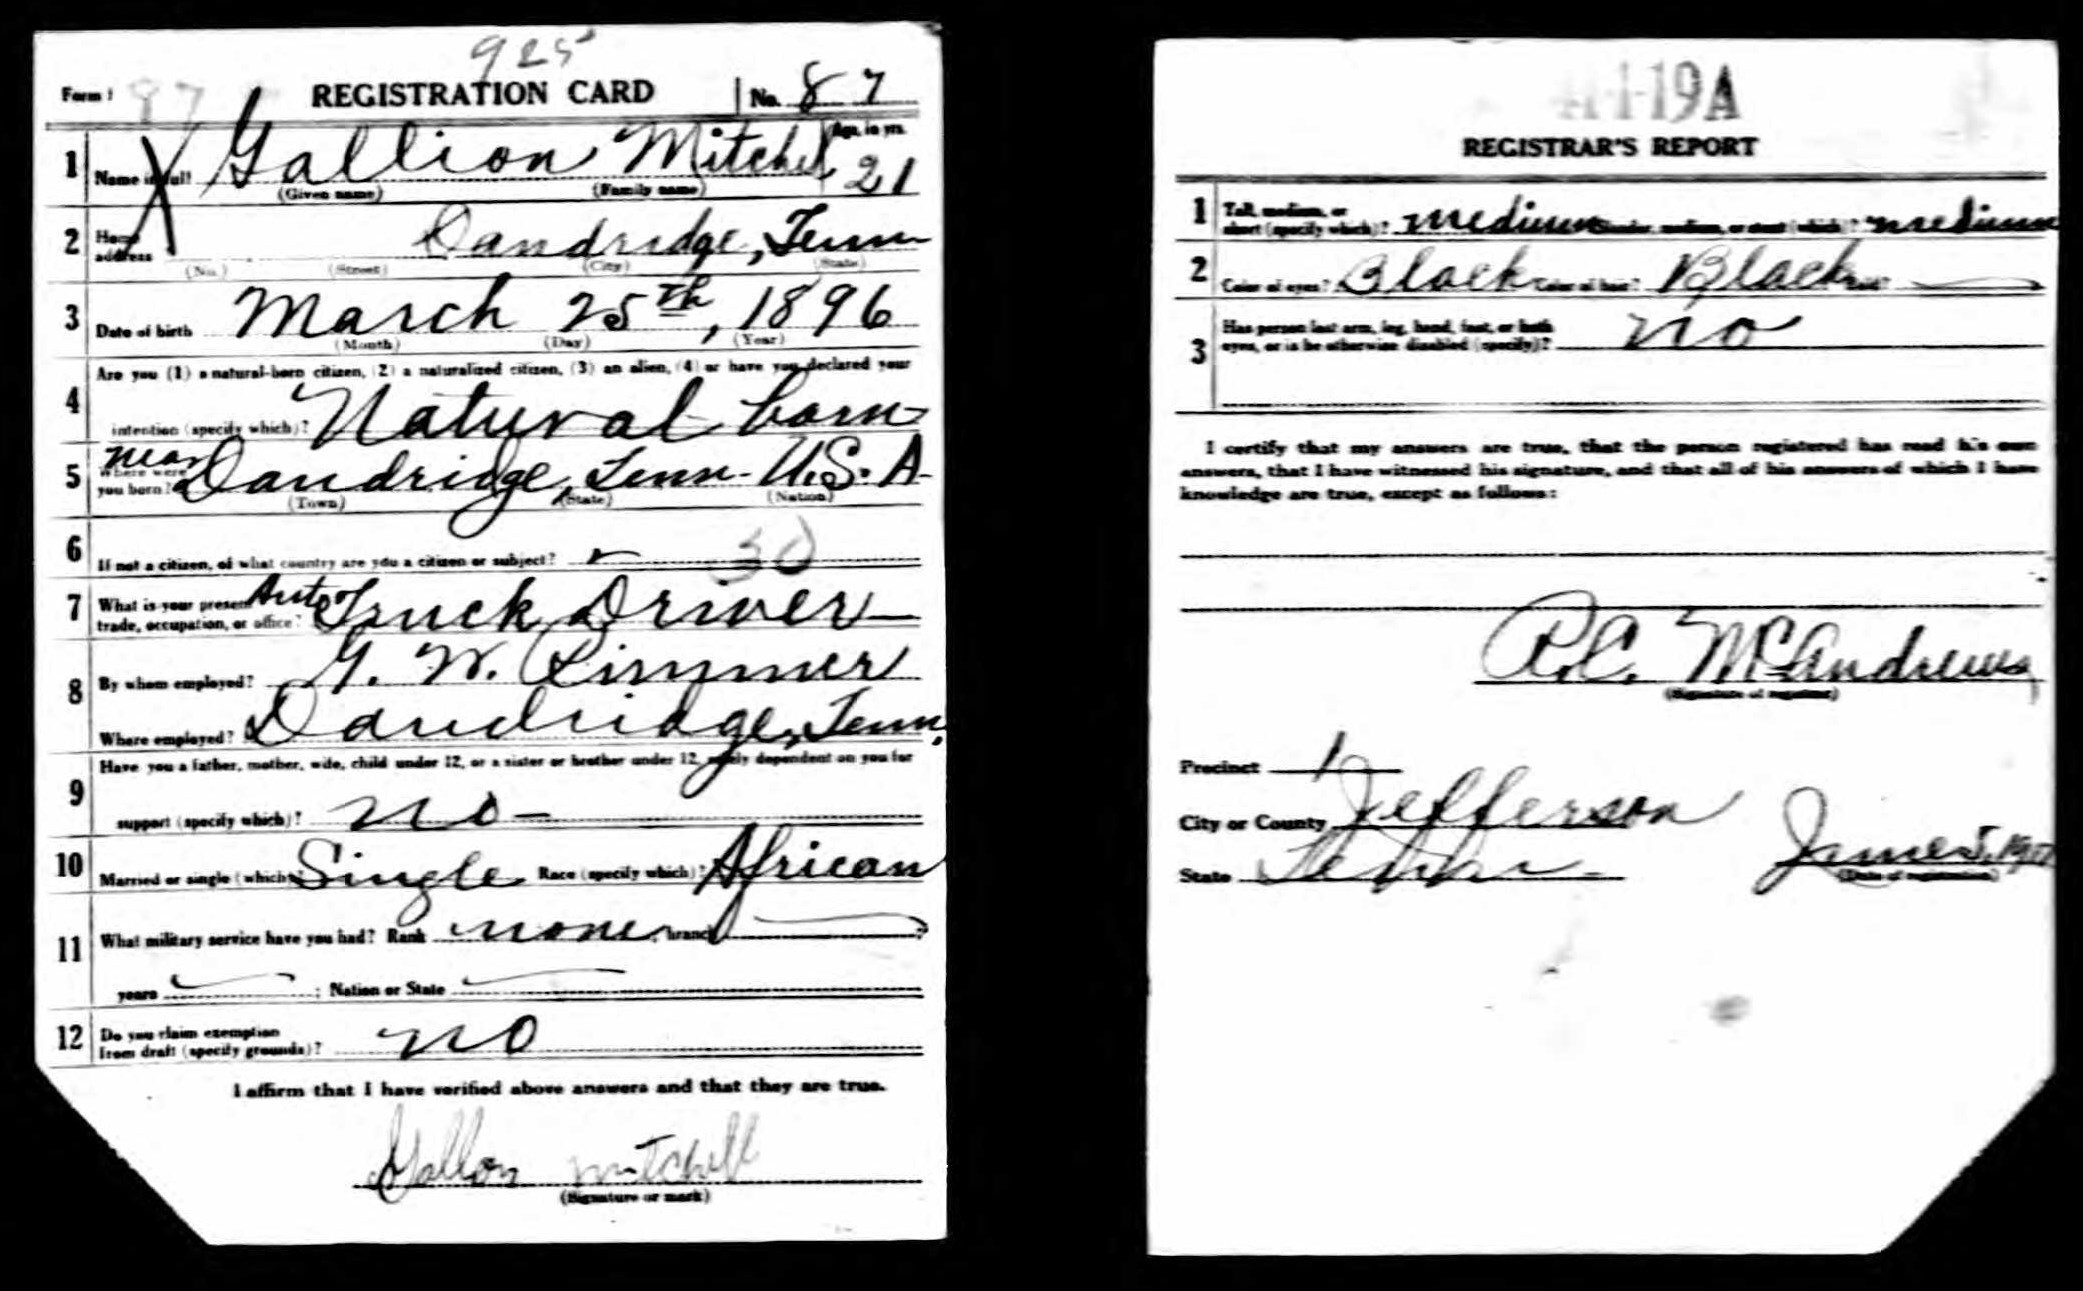 925
Form 1 97 REGISTRATION CARD No. 87
1 Name in full Gallion Mitchel Age, in yrs. 21
(Given name) (Family name)
2 Home address Dandridge, Tenn
(No.) (Street) (City) (State)
3 Date of birth March 25th, 1896
(Month) (Day) (Year)
Are you (1) a natural-born citizen, (2) a naturalized citizen, (3) an alien, (4) or have you declared your
4 intention (specify which)? Natural born
5 Where were you born? near Dandridge, Tenn- U.S.A-
(Town) (State) (Nation)
6 If not a citizen, of what country are you a citizen or subject? 30
7 What is your present trade, occupation, or office? Auto Truck Driver
8 By whom employed? G. W. Rimmer
Where employed? Dandridge, Tenn.
Have you a father, mother, wife, child under 12, or a sister or brother under 12, solely dependent on you for
9 support (specify which)? no -
10 Married or single (which)? Single Race (specify which)? African
11 What military service have you had? Rank none; branch ?
years ; Nation or State
12 Do you claim exemption
from draft (specify grounds)? no
I affirm that I have verified above answers and that they are true.
Gallon mitchell
(Signature or mark)
41-1-19A
REGISTRAR'S REPORT
1 Tall, medium, or
short (specify which)? medium Slender, medium, or stout (which)? medium
2 Color of eyes? Black Color of hair? Black Bald?
3 Has person lost arm, leg, hand, foot, or both
eyes, or is he otherwise disabled (specify)? no
I certify that my answers are true, that the person registered has read his own
answers, that I have witnessed his signature, and that all of his answers of which I have
knowledge are true, except as follows:
R.C. McAndrews
(Signature of registrar)
Precinct 1
City or County Jefferson
State Tenn. June 5, 1917
(Date of registration)